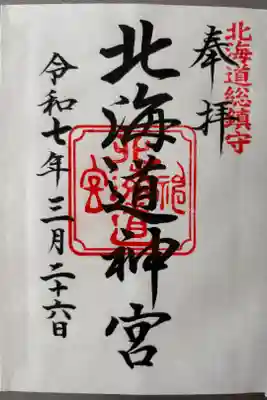 北海道総鎮守
奉拝
北海道神宮
北海道神宮
令和七年三月二十六日